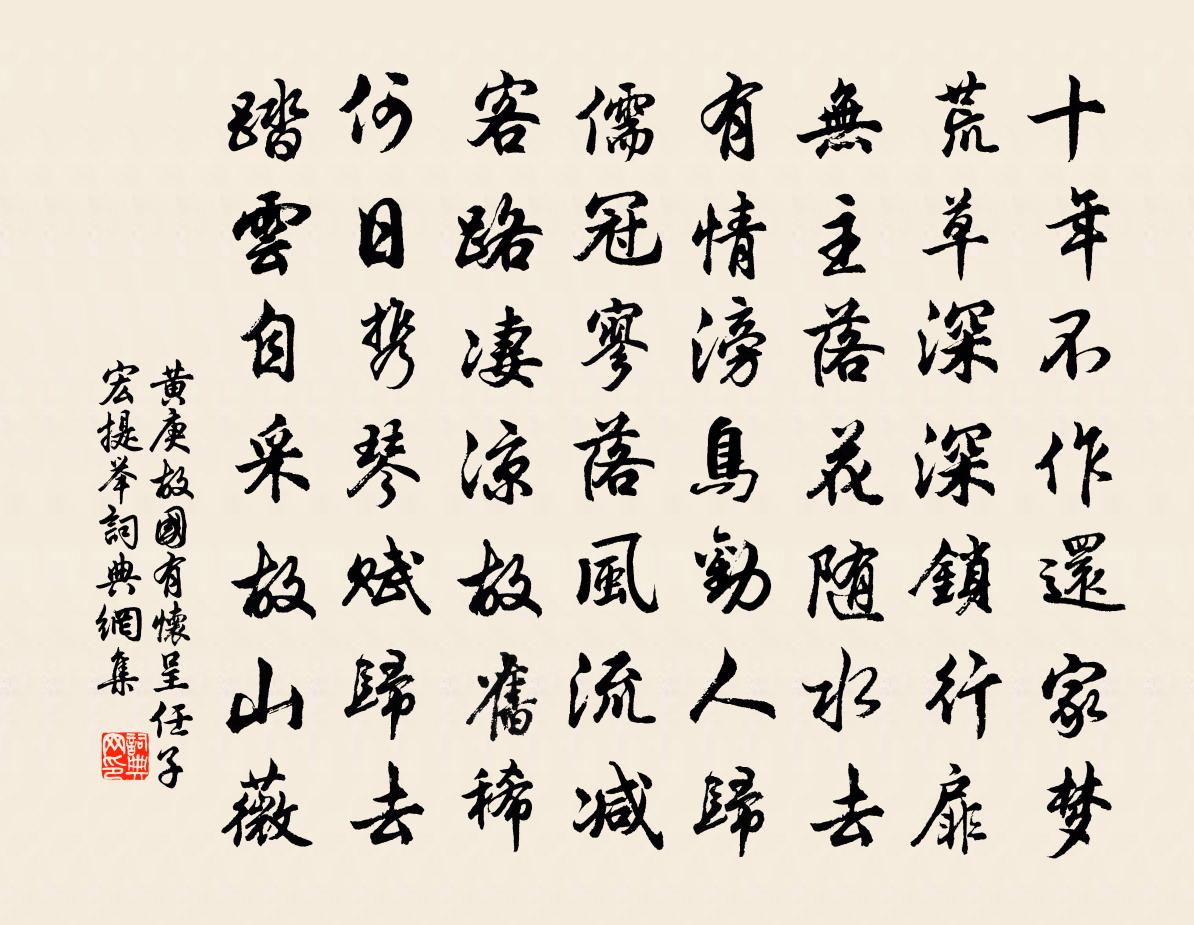 十年不作還家梦
荒草深深鎖行扉
無主落花随水去
有情滂鳥勸人歸
儒冠寥落風流減
客路凄涼故舊稀
何日携琴賦歸去
踏雲自采故山薇
黄庚故國有懷呈任子
宏提举詞典網集
詞典网印